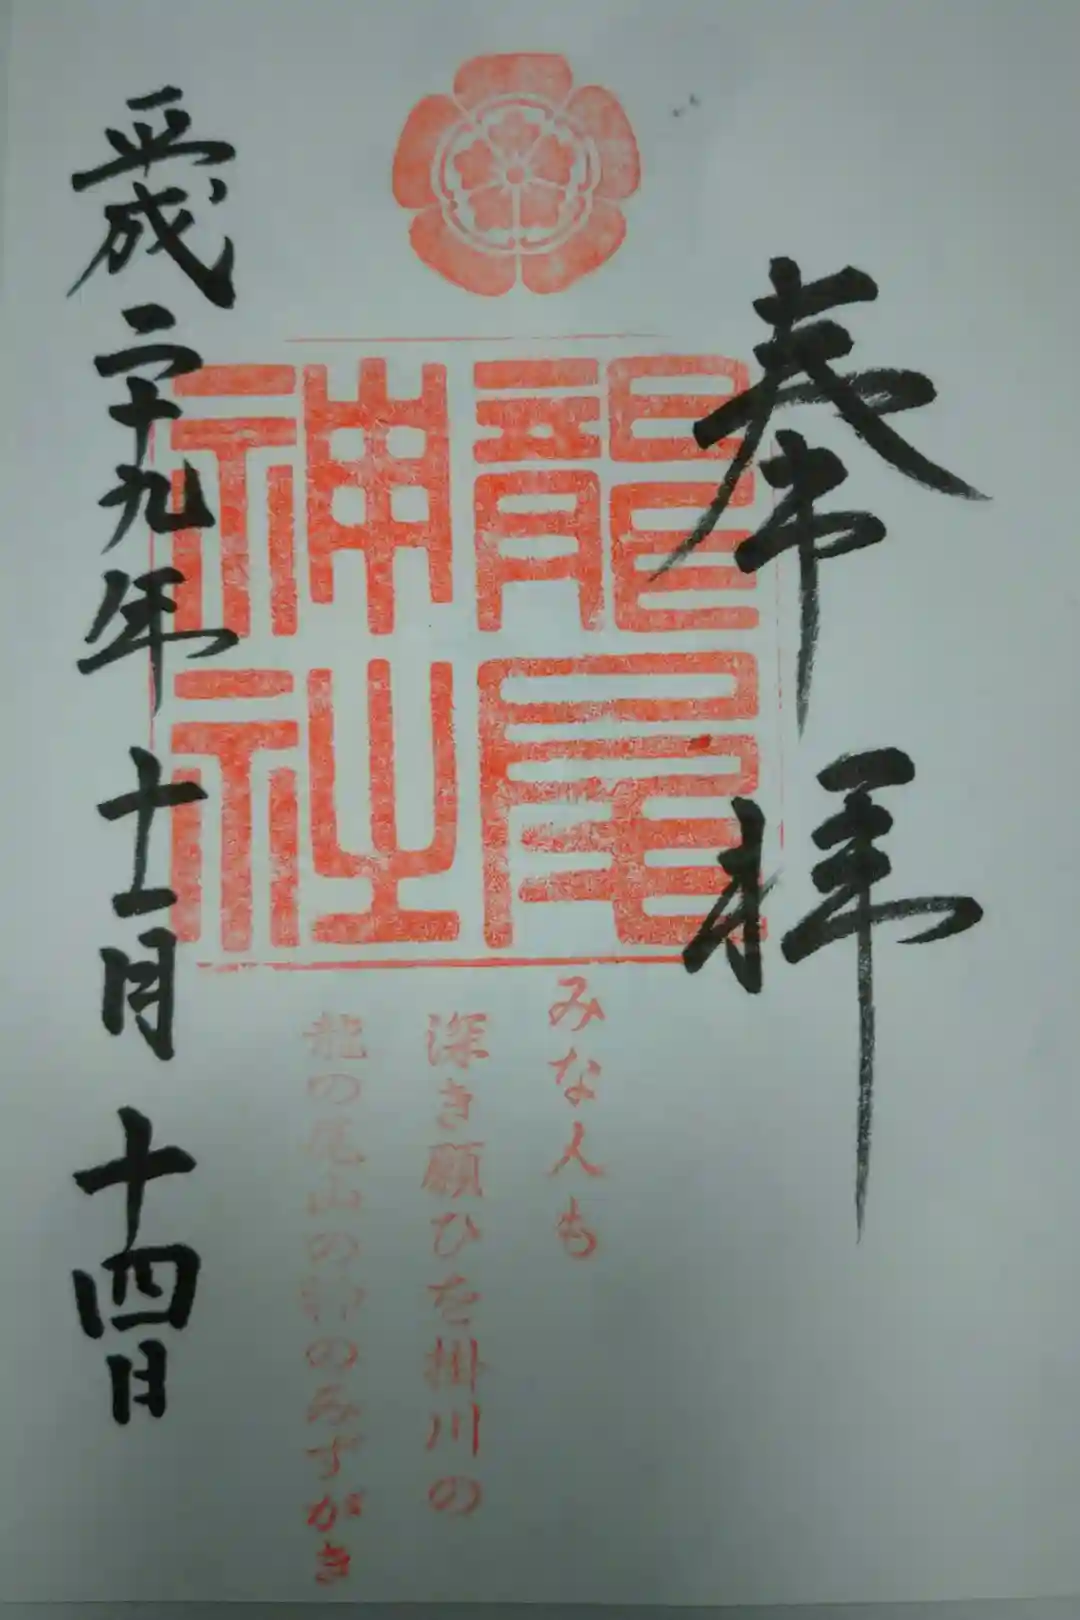 奉拝
龍尾
神社
みな人も
深き願ひを掛川の
龍の尾山の神のみずがき
平成二十九年 十一月 十四日